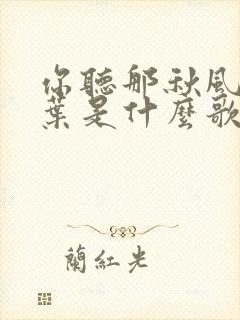 你聽那秋風
葉是什麼歌
蘭紅光